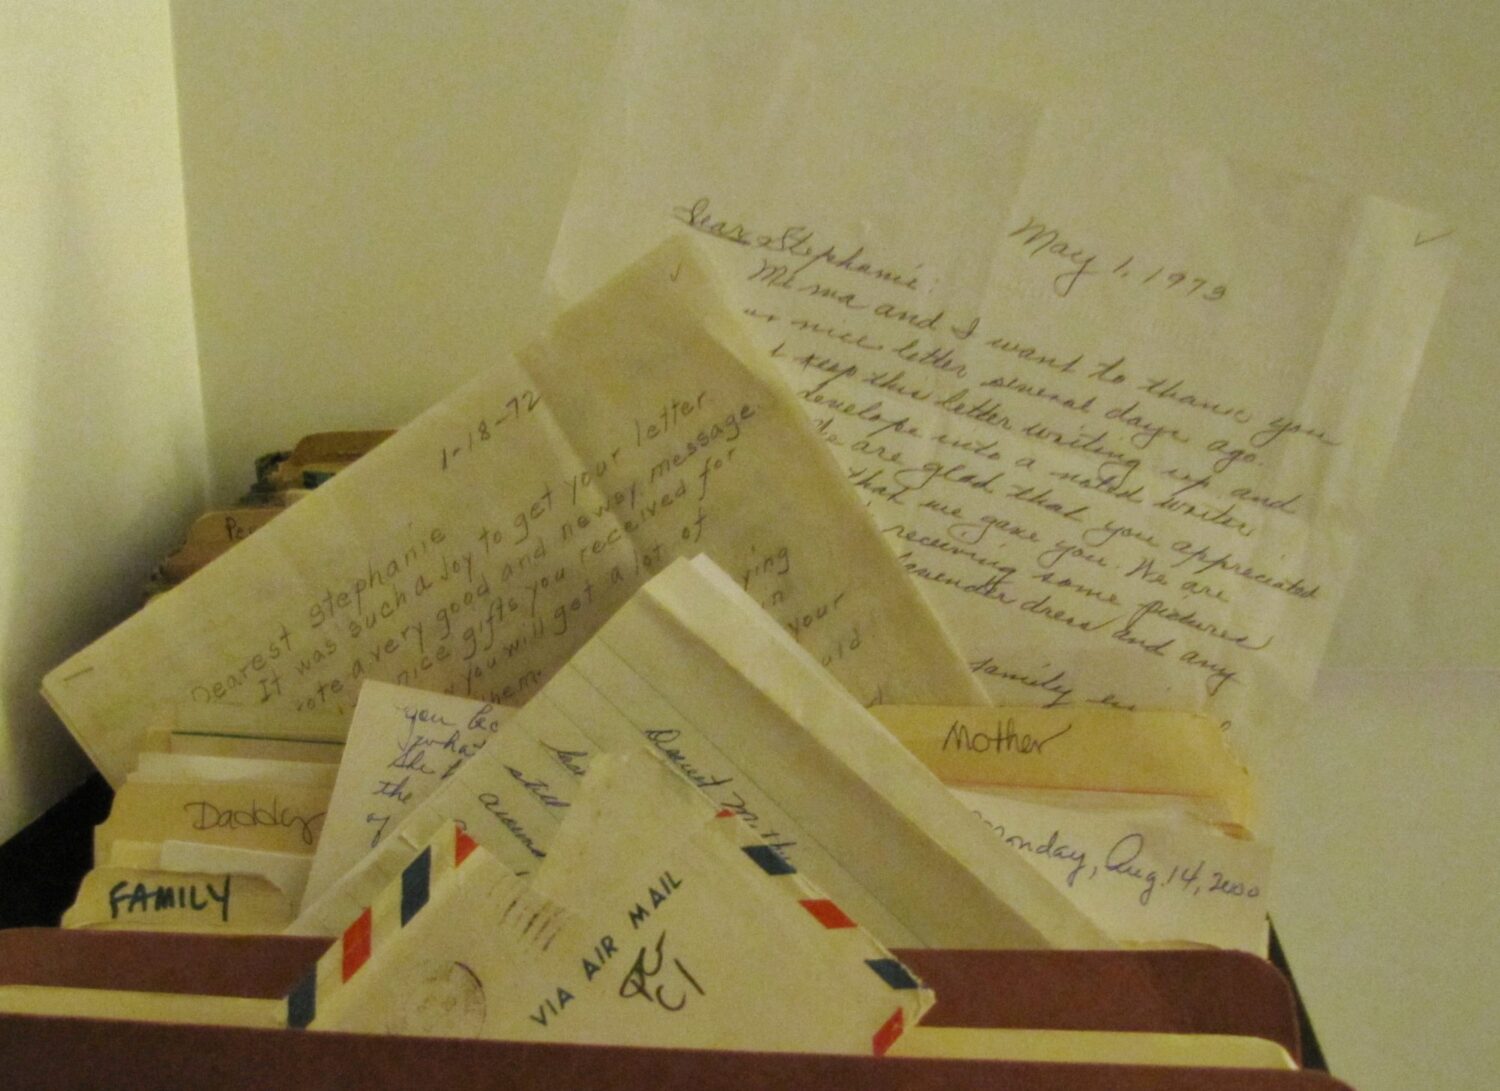 May 1, 1973
Dear Stephanie:
Mema and I want to thank you
nice letter several days ago.
keep this letter writing up and
develope into a noted writer.
We are glad that you appreciated
that we gave you. We are
receiving some pictures
lavender dress and any
family
1-18-72
Dearest Stephanie
It was such a Joy to get your letter.
a very good and newsy message
nice gifts you received for
you will get a lot of
them.
ying
in
your
uld
you
what
She
the
of
still
Mother
Monday, Aug. 14, 2000
Daddy
FAMILY
VIA AIR MAIL